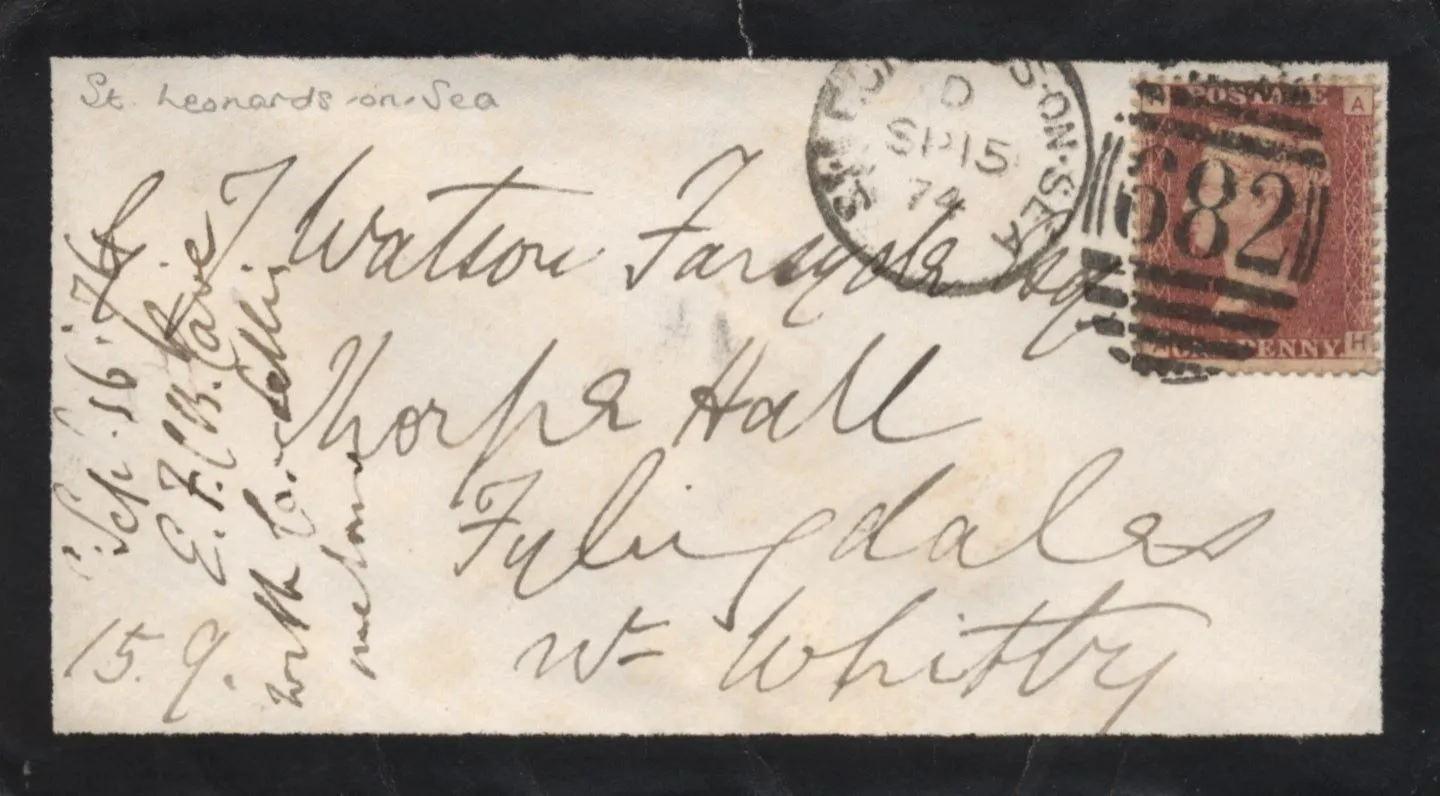 St. Leonards-on-Sea
ST. LEONARDS-ON-SEA
D
SP 15
74
POSTAGE
A
682
H
ONE PENNY
J. Watson Forsyth Esq
Thorpe Hall
Fylingdales
Nr Whitby
15. 9.
Sep. 16. '74
E. F. B. Cave
with
me home